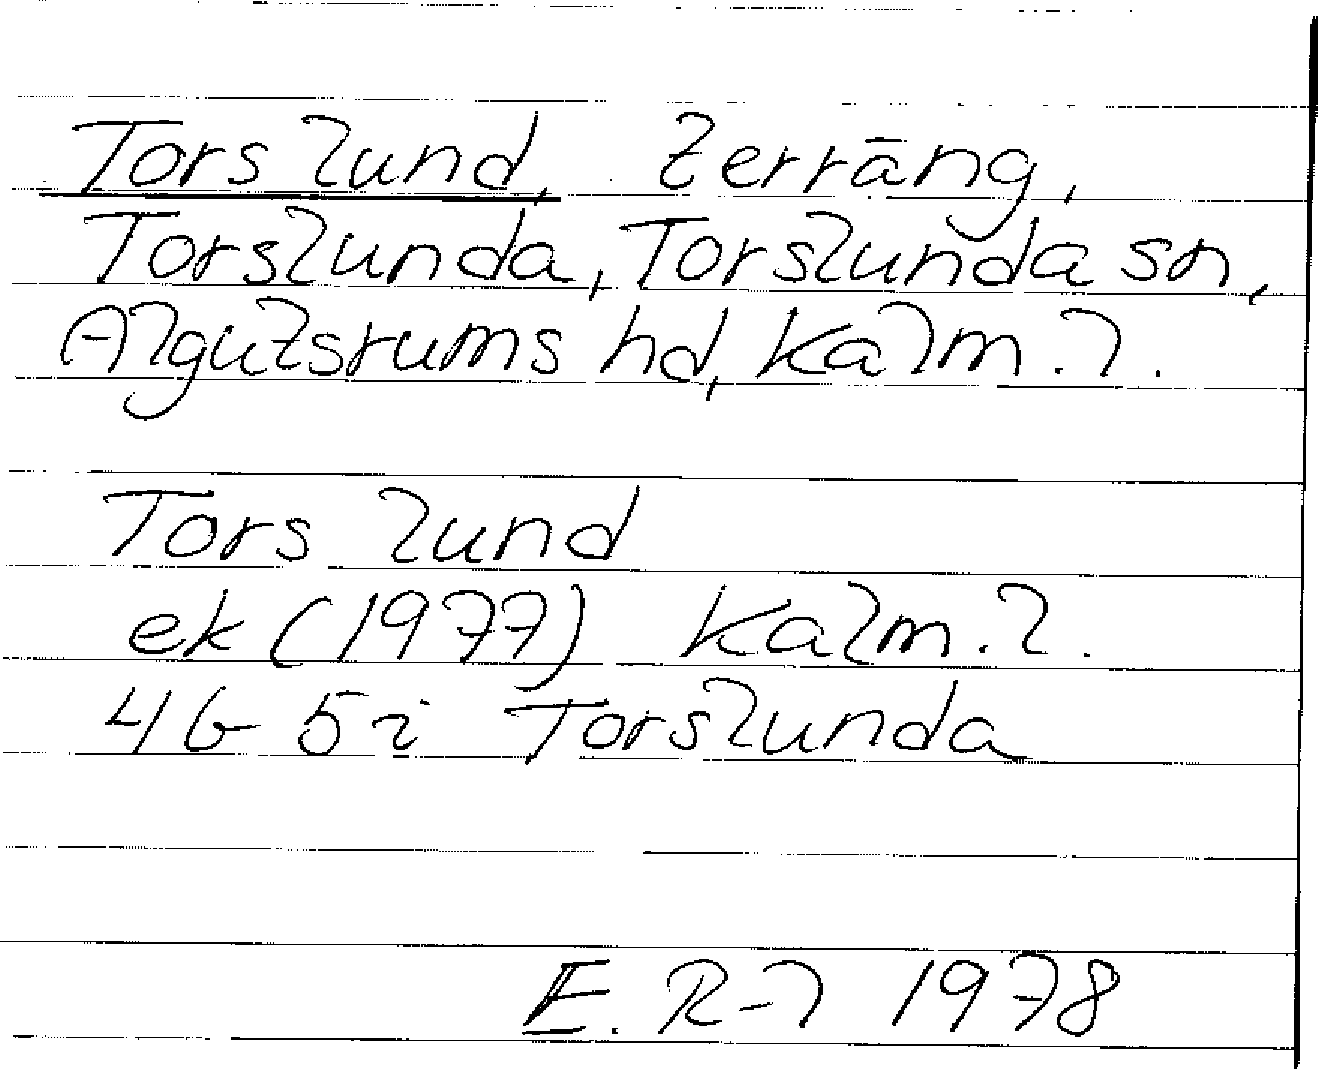 Tors lund, terräng,
Torslunda, Torslunda sn,
Algutsrums hd, Kalm. l.
Tors lund
ek (1977) Kalm. l.
4G 5i Torslunda
E. R-l 1978